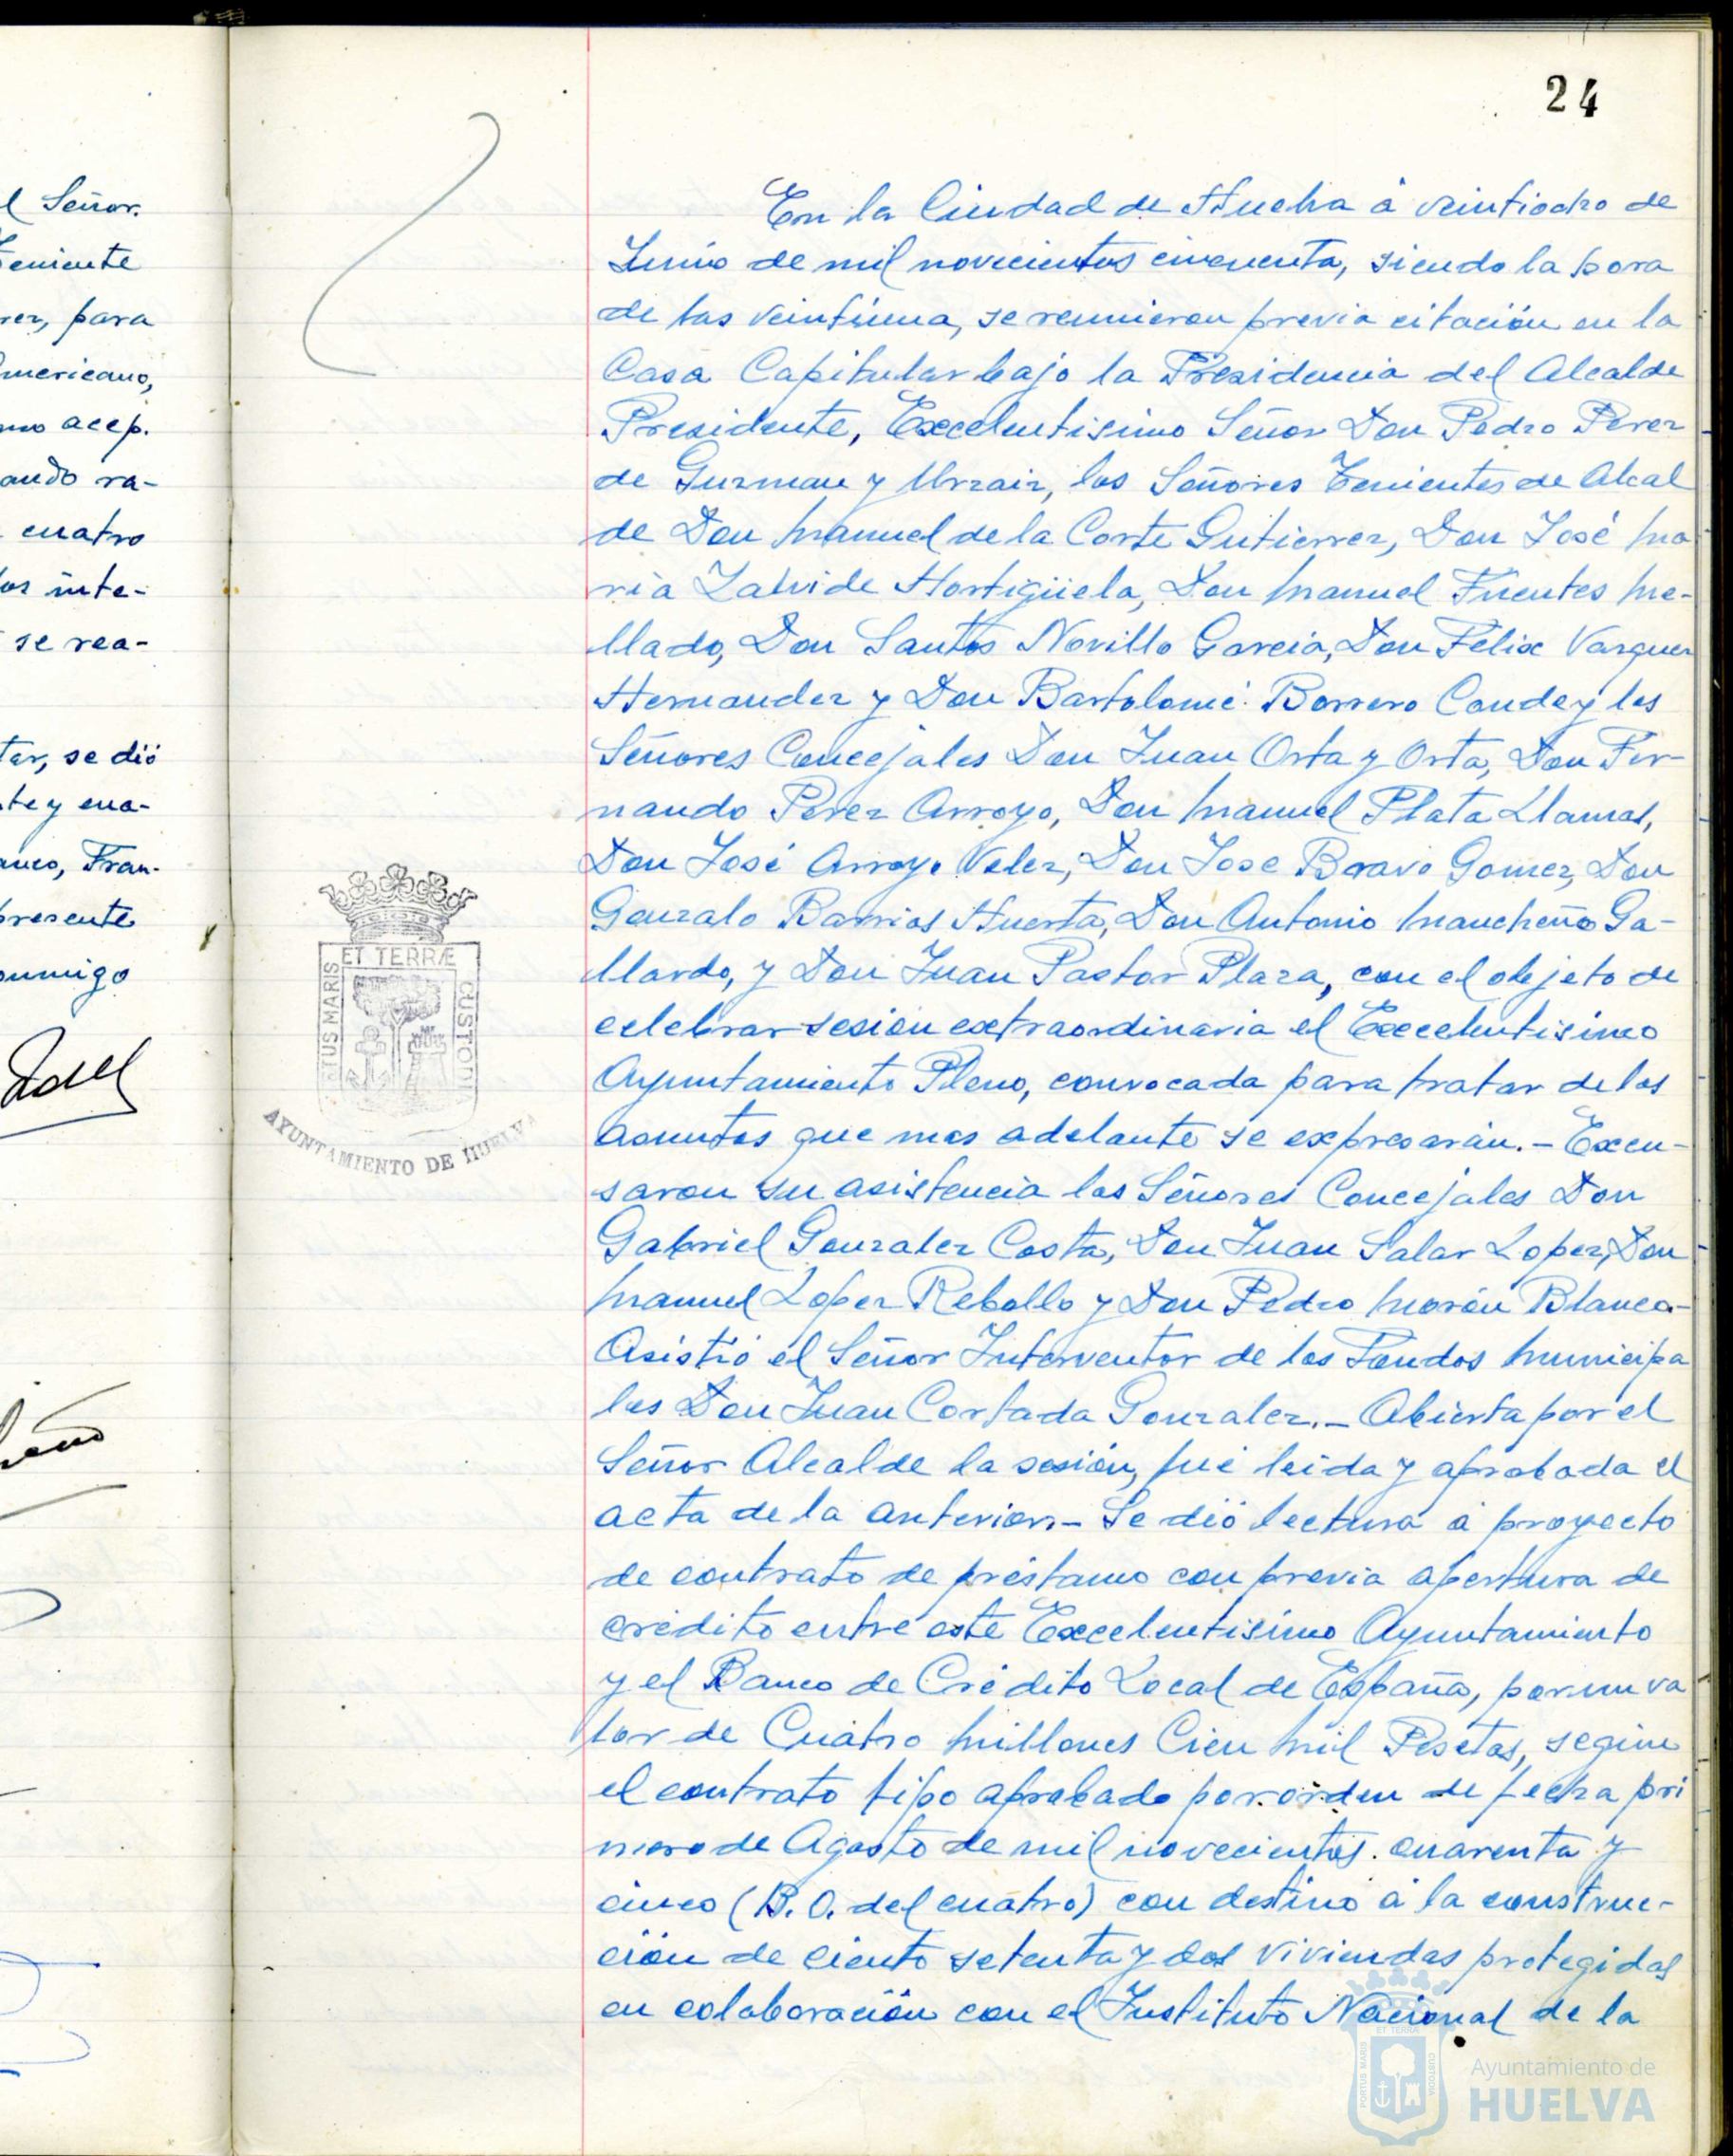 l Señor.
Teniente
rez, para
mericano,
mo acep.
ando ra-
cuatro
los inte-
se rea-
tar, se dió
te y cua-
anco, Fran-
presente
onmigo
24
En la Ciudad de Huelva á veintiocho de
Junio de mil novecientos cincuenta, siendo la hora
de las veintiuna, se reunieron previa citación en la
Casa Capitular bajo la Presidencia del Alcalde
Presidente, Excelentisimo Señor Don Pedro Perez
de Guzman y Urzaiz, los Señores Tenientes de Alcal
de Don Manuel de la Corte Gutierrez, Don José Ma
ria Zalvide Hortigüela, Don Manuel Fuentes Me-
llado, Don Santos Novillo Garcia, Don Felix Vazquez
Hernandez y Don Bartolomé Borrero Conde y los
Señores Concejales Don Juan Orta y Orta, Don Fer-
nando Perez Arroyo, Don Manuel Plata Llamas,
Don José Arroyo Velez, Don Jose Bravo Gomez, Don
Gonzalo Barrios Huerta, Don Antonio Mancheño Ga-
llardo, y Don Juan Pastor Plaza, con el objeto de
celebrar sesión extraordinaria el Excelentisimo
Ayuntamiento Pleno, convocada para tratar de los
asuntos que mas adelante se expresarán.- Excu-
saron su asistencia los Señores Concejales Don
Gabriel Gonzalez Costa, Don Juan Salas Lopez, Don
Manuel Lopez Rebollo y Don Pedro Morón Blanco-
Asistió el Señor Interventor de los Fondos Municipa
les Don Juan Cortada Gonzalez.- Abierta por el
Señor Alcalde la sesión, fué leida y aprobada el
acta de la anterior.- Se dió lectura á proyecto
de contrato de préstamo con previa apertura de
crédito entre este Excelentisimo Ayuntamiento
y el Banco de Crédito Local de España, por un va
lor de Cuatro Millones Cien Mil Pesetas, segun
el contrato tipo aprobado por orden de fecha pri
mero de Agosto de mil novecientos cuarenta y
cinco (B.O. del cuatro) con destino á la construc-
ción de ciento setenta y dos viviendas protegidas
en colaboración con el Instituto Nacional de la
PORTUS MARIS ET TERRÆ CUSTODIA
AYUNTAMIENTO DE HUELVA
PORTUS MARIS ET TERRÆ CUSTODIA
Ayuntamiento de
HUELVA